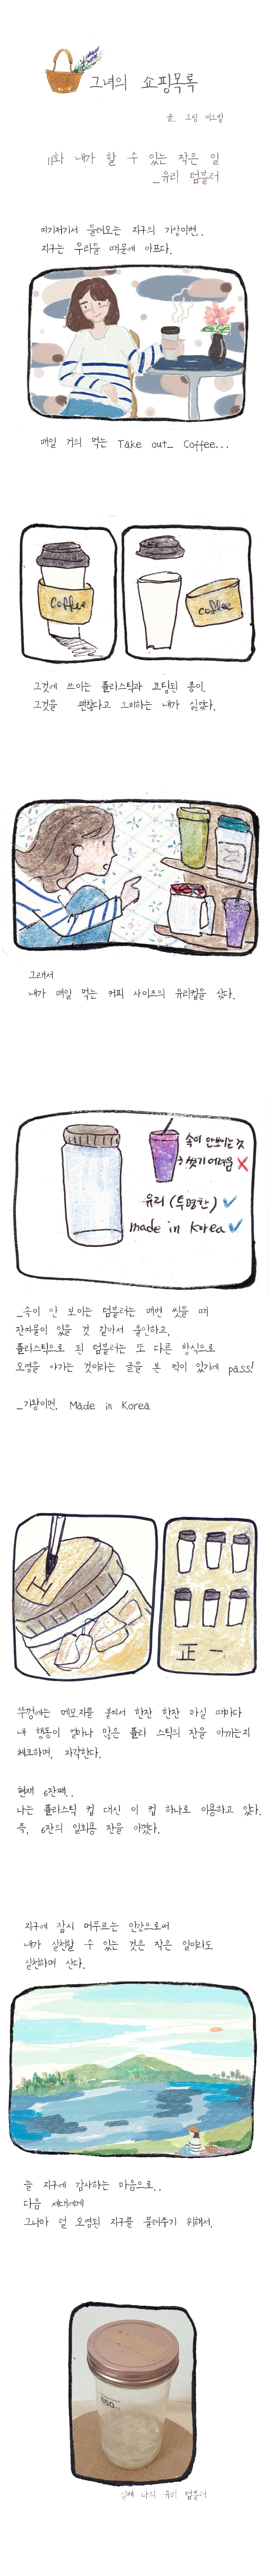 그녀의 쇼핑목록
글. 그림 이도발
11화 내가 할 수 있는 작은 일
_유리 텀블러
여기저기서 들려오는 지구의 기상이변..
지구는 우리들 때문에 아프다.
매일 거의 먹는 Take out_ Coffee...
Coffee
coffee
그것에 쓰이는 플라스틱과 코팅된 종이.
그것을 괜찮다고 소비하는 내가 싫었다.
그래서
내가 매일 먹는 커피 사이즈의 유리컵을 샀다.
속이 안보이는 것
→ 씻기 어려움 X
유리 (투명한) ✓
made in Korea ✓
_속이 안 보이는 텀블러는 매번 씻을 때
잔여물이 있을 것 같아서 불안하고,
플라스틱으로 된 텀블러는 또 다른 방식으로
오염을 야기는 것이라는 글을 본 적이 있기에 pass!
_기왕이면, Made in Korea
正 一
뚜껑에는 메모지를 붙여서 한잔 한잔 마실 때마다
내 행동이 얼마나 많은 플라 스틱의 잔을 아끼는지
체크하며, 자각한다.
현재 6잔째..
나는 플라스틱 컵 대신 이 컵 하나로 이용하고 있다.
즉, 6잔의 일회용 잔을 아꼈다.
지구에 잠시 머무르는 인간으로써
내가 실천할 수 있는 것은 작은 일이라도
실천하며 산다.
늘 지구에 감사하는 마음으로..
다음 세대에게
그나마 덜 오염된 지구를 물려주기 위해서.
550
실제 나의 유리 텀블러